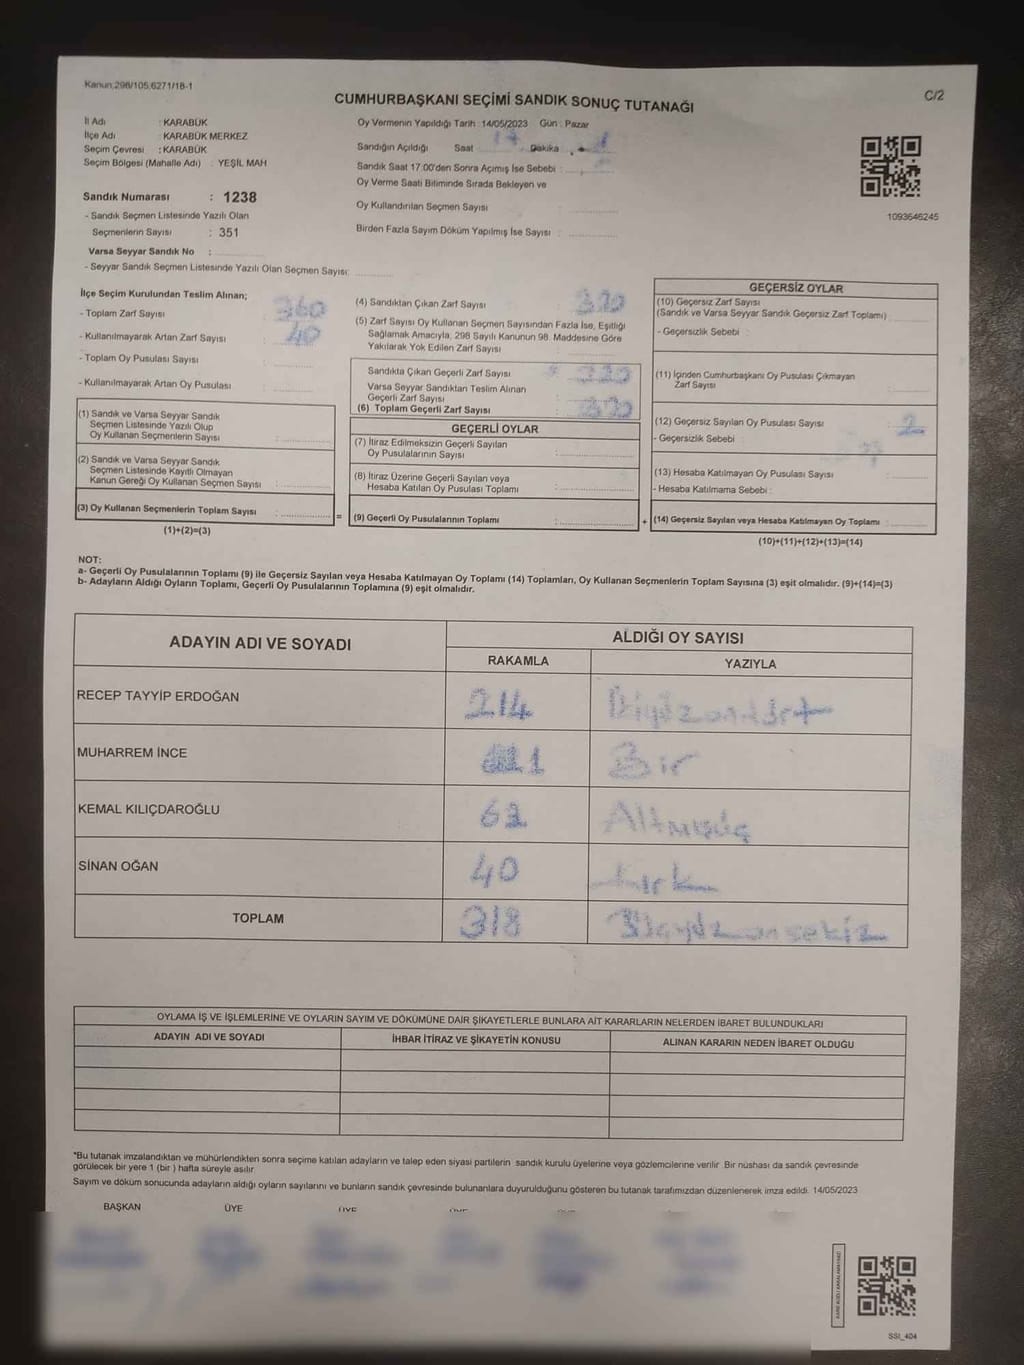 Kanun:298/105,6271/18-1
CUMHURBAŞKANI SEÇİMİ SANDIK SONUÇ TUTANAĞI
C/2
İl Adı : KARABÜK
İlçe Adı : KARABÜK MERKEZ
Seçim Çevresi : KARABÜK
Seçim Bölgesi (Mahalle Adı) : YEŞİL MAH
Sandık Numarası : 1238
- Sandık Seçmen Listesinde Yazılı Olan
Seçmenlerin Sayısı : 351
Varsa Seyyar Sandık No :
- Seyyar Sandık Seçmen Listesinde Yazılı Olan Seçmen Sayısı:
Oy Vermenin Yapıldığı Tarih :14/05/2023 Gün : Pazar
Sandığın Açıldığı Saat 17 Dakika
Sandık Saat 17:00'den Sonra Açımış İse Sebebi :
Oy Verme Saati Bitiminde Sırada Bekleyen ve
Oy Kullandırılan Seçmen Sayısı :
Birden Fazla Sayım Döküm Yapılmış İse Sayısı :
1093646245
İlçe Seçim Kurulundan Teslim Alınan;
- Toplam Zarf Sayısı : 360
- Kullanılmayarak Artan Zarf Sayısı : 40
- Toplam Oy Pusulası Sayısı :
- Kullanılmayarak Artan Oy Pusulası :
(1) Sandık ve Varsa Seyyar Sandık
Seçmen Listesinde Yazılı Olup
Oy Kullanan Seçmenlerin Sayısı :
(2) Sandık ve Varsa Seyyar Sandık
Seçmen Listesinde Kayıtlı Olmayan
Kanun Gereği Oy Kullanan Seçmen Sayısı :
(3) Oy Kullanan Seçmenlerin Toplam Sayısı :
(1)+(2)=(3)
=
(4) Sandıktan Çıkan Zarf Sayısı : 320
(5) Zarf Sayısı Oy Kullanan Seçmen Sayısından Fazla İse, Eşitliği
Sağlamak Amacıyla, 298 Sayılı Kanunun 98. Maddesine Göre
Yakılarak Yok Edilen Zarf Sayısı :
Sandıkta Çıkan Geçerli Zarf Sayısı : 320
Varsa Seyyar Sandıktan Teslim Alınan
Geçerli Zarf Sayısı :
(6) Toplam Geçerli Zarf Sayısı : 320
GEÇERLİ OYLAR
(7) İtiraz Edilmeksizin Geçerli Sayılan
Oy Pusulalarının Sayısı :
(8) İtiraz Üzerine Geçerli Sayılan veya
Hesaba Katılan Oy Pusulası Toplamı :
(9) Geçerli Oy Pusulalarının Toplamı :
+
GEÇERSİZ OYLAR
(10) Geçersiz Zarf Sayısı
(Sandık ve Varsa Seyyar Sandık Geçersiz Zarf Toplamı) :
- Geçersizlik Sebebi :
(11) İçinden Cumhurbaşkanı Oy Pusulası Çıkmayan
Zarf Sayısı :
(12) Geçersiz Sayılan Oy Pusulası Sayısı : 2
- Geçersizlik Sebebi :
(13) Hesaba Katılmayan Oy Pusulası Sayısı :
- Hesaba Katılmama Sebebi :
(14) Geçersiz Sayılan veya Hesaba Katılmayan Oy Toplamı :
(10)+(11)+(12)+(13)=(14)
NOT:
a- Geçerli Oy Pusulalarının Toplamı (9) ile Geçersiz Sayılan veya Hesaba Katılmayan Oy Toplamı (14) Toplamları, Oy Kullanan Seçmenlerin Toplam Sayısına (3) eşit olmalıdır. (9)+(14)=(3)
b- Adayların Aldığı Oyların Toplamı, Geçerli Oy Pusulalarının Toplamına (9) eşit olmalıdır.
ADAYIN ADI VE SOYADI
ALDIĞI OY SAYISI
RAKAMLA YAZIYLA
RECEP TAYYİP ERDOĞAN 214 İkiyüzondört
MUHARREM İNCE 1 Bir
KEMAL KILIÇDAROĞLU 63 Altmışüç
SİNAN OĞAN 40 kırk
TOPLAM 318 Üçyüzonsekiz
OYLAMA İŞ VE İŞLEMLERİNE VE OYLARIN SAYIM VE DÖKÜMÜNE DAİR ŞİKAYETLERLE BUNLARA AİT KARARLARIN NELERDEN İBARET BULUNDUKLARI
ADAYIN ADI VE SOYADI İHBAR İTİRAZ VE ŞİKAYETİN KONUSU ALINAN KARARIN NEDEN İBARET OLDUĞU
*Bu tutanak imzalandıktan ve mühürlendikten sonra seçime katılan adayların ve talep eden siyasi partilerin sandık kurulu üyelerine veya gözlemcilerine verilir. Bir nüshası da sandık çevresinde
görülecek bir yere 1 (bir ) hafta süreyle asılır.
Sayım ve döküm sonucunda adayların aldığı oyların sayılarını ve bunların sandık çevresinde bulunanlara duyurulduğunu gösteren bu tutanak tarafımızdan düzenlenerek imza edildi. 14/05/2023
BAŞKAN ÜYE ÜYE
SSI_404